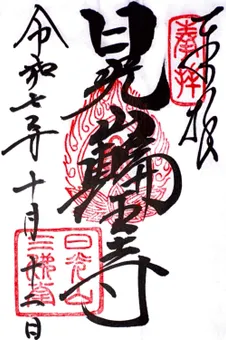 奉拝
日光山輪王寺
日光山
三佛堂
令和七年十月廿二日